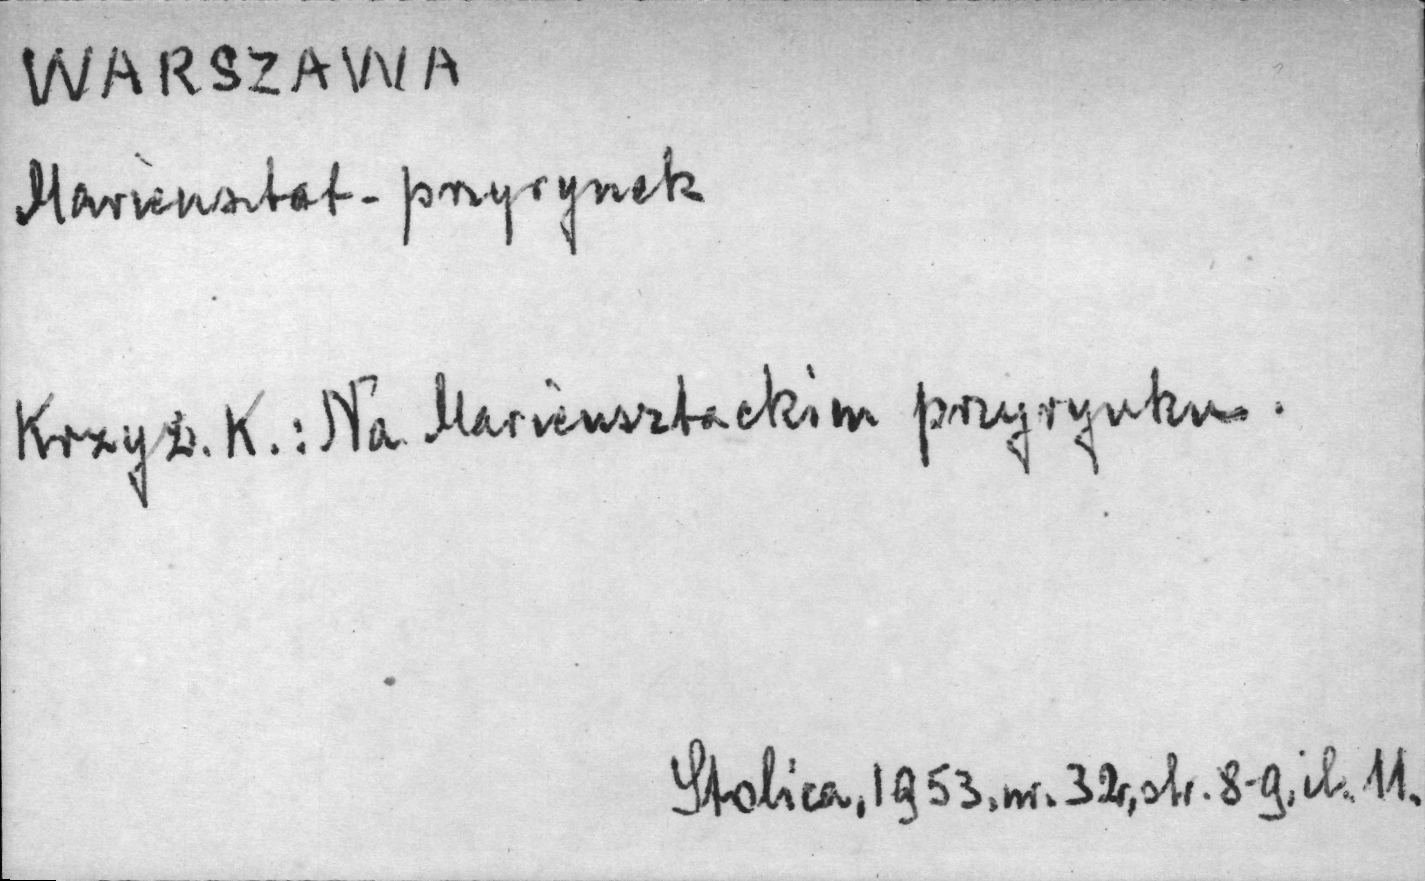 WARSZAWA
Mariensztat - przyrynek
Krzyż. K.: Na Mariensztackim przyrynku.
Stolica, 1953, nr. 32, str. 8-9, il. 11.